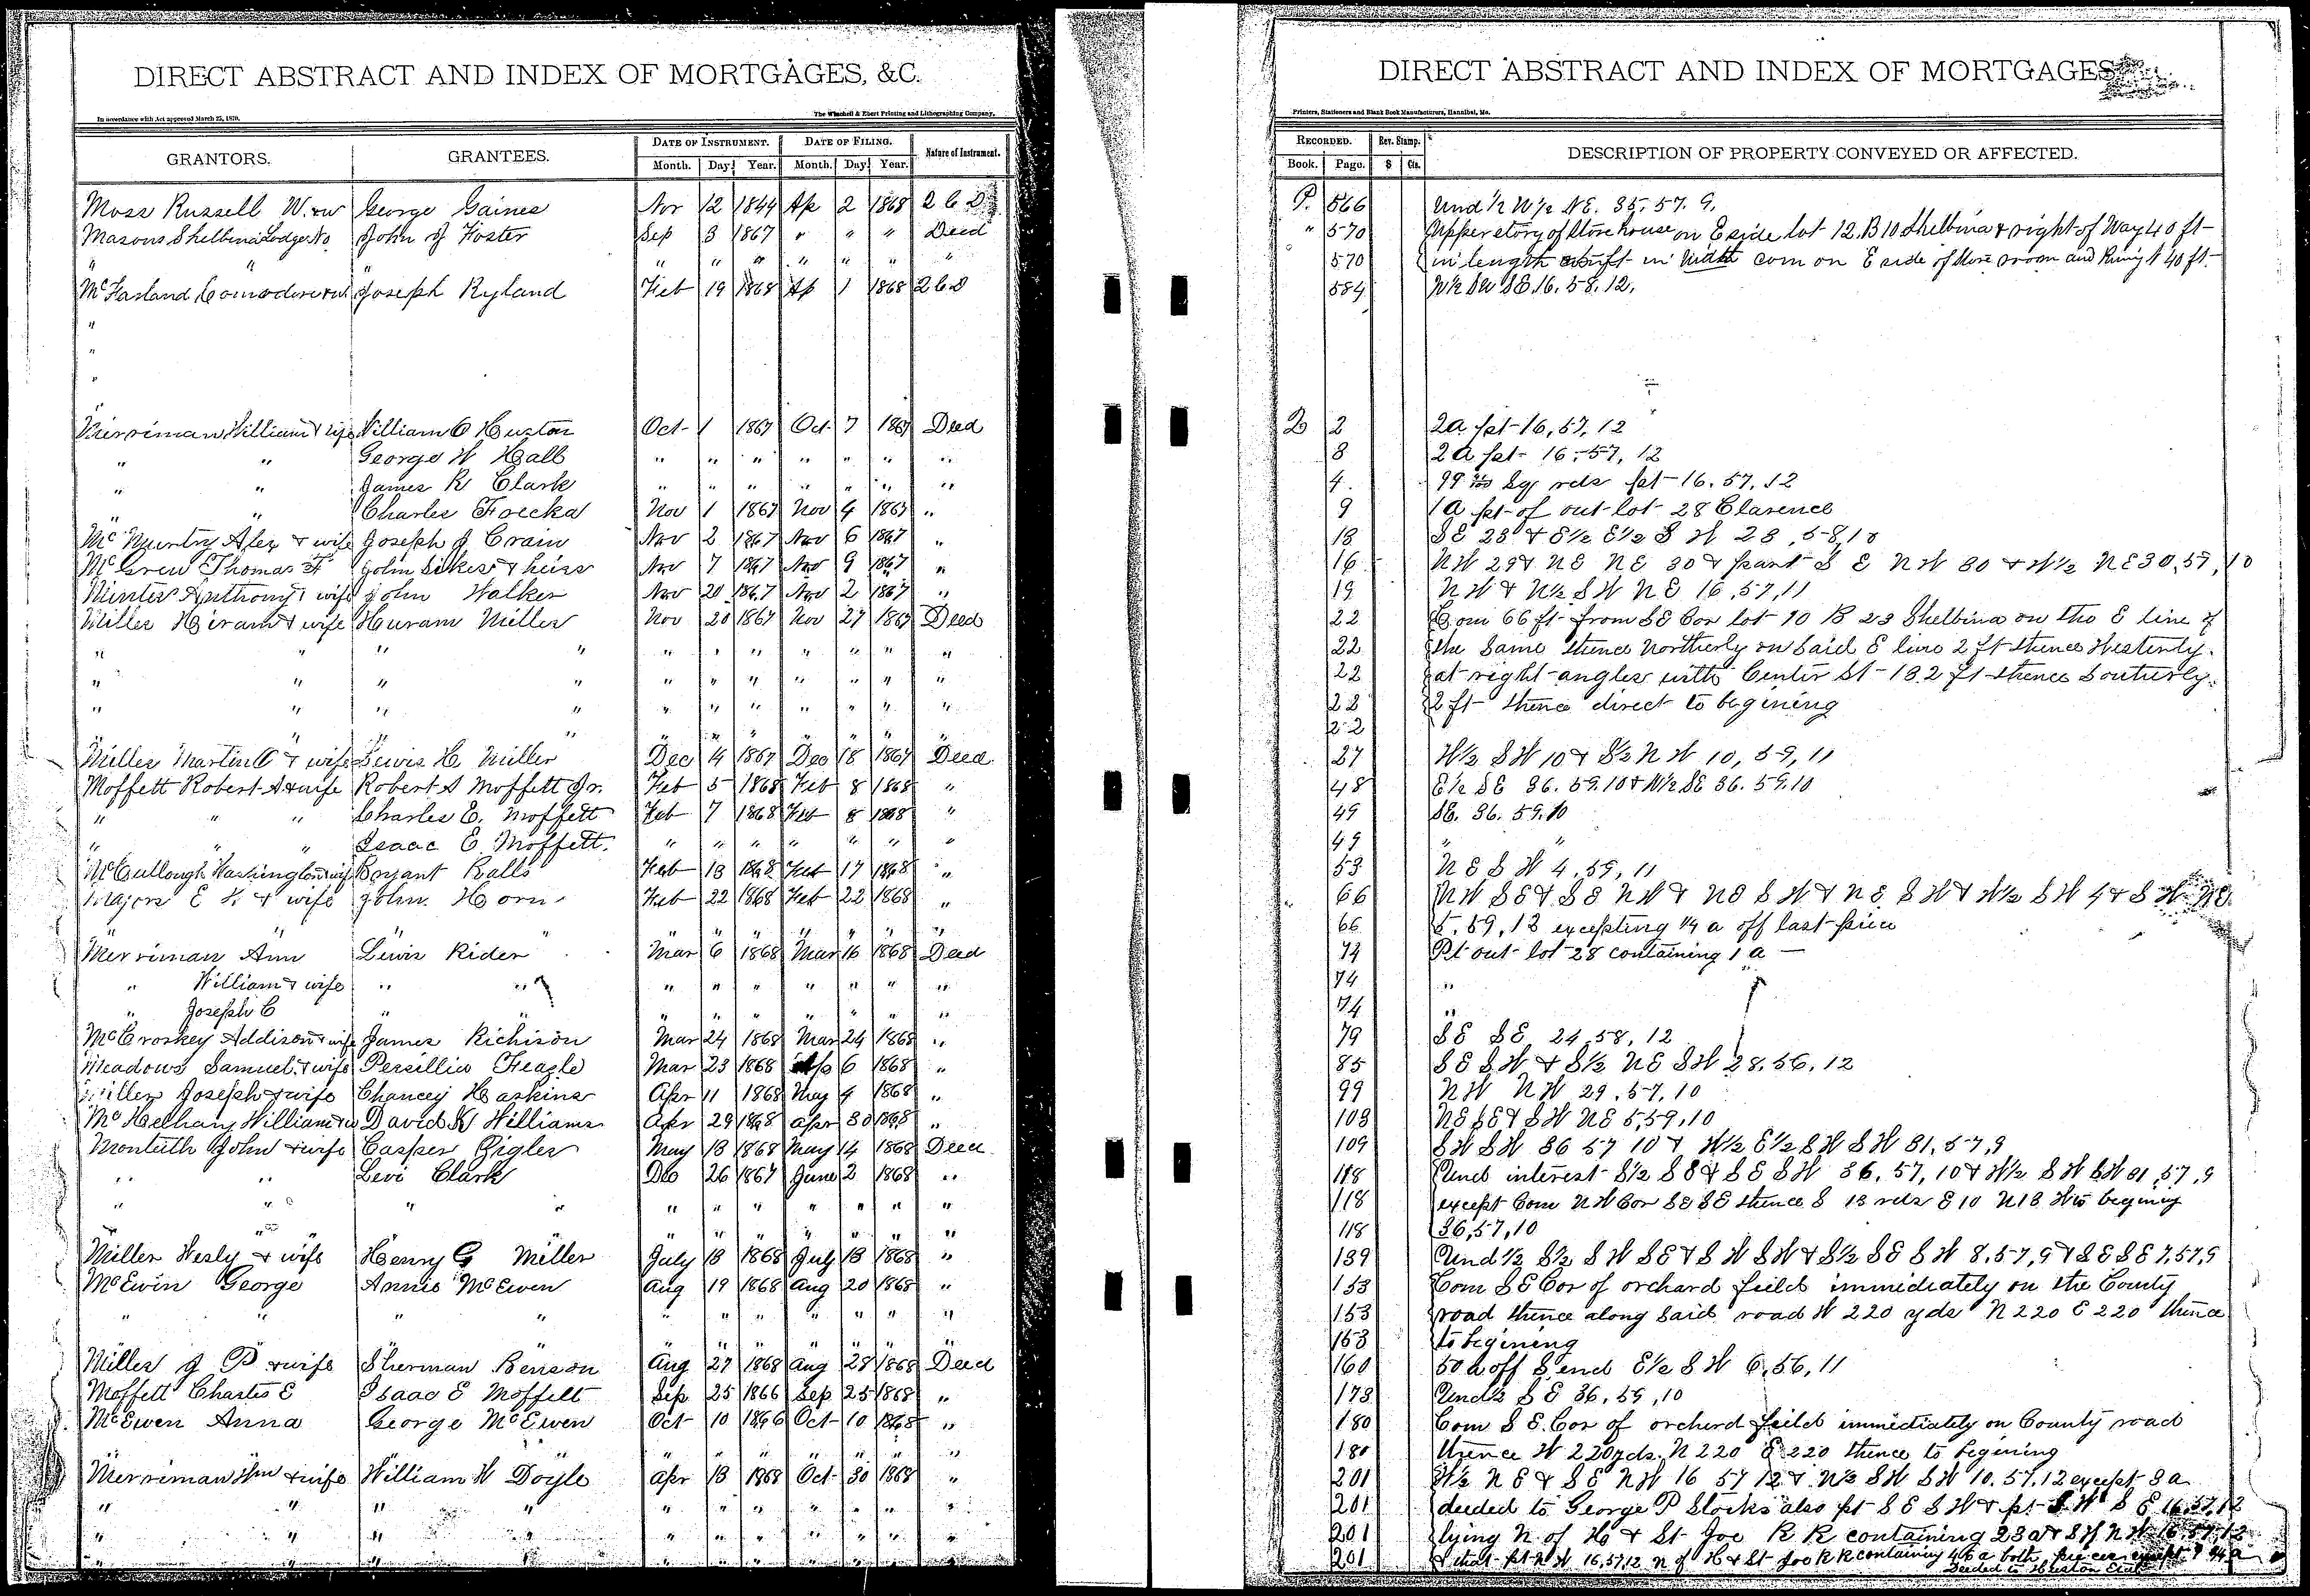 DIRECT ABSTRACT AND INDEX OF MORTGAGES, &C.
In accordance with Act approved March 25, 1870.
The Winchell & Ebert Printing and Lithographing Company,
GRANTORS. GRANTEES. DATE OF INSTRUMENT. DATE OF FILING. Nature of Instrument.
Month. Day Year. Month. Day Year.
Moss Russell W. & w George Gaines Nov 12 1844 Ap 2 1868 2 C D
Masons Shelbina Lodge No. John J Foster Sep 3 1867 " " " Deed
" " " " " " " " "
McFarland Comodore & w Joseph Ryland Feb 19 1868 Ap 1 1868 2 C D
"
"
"
"
Merriman William & wife William O Huston Oct 1 1867 Oct 7 1867 Deed
" " George W Hall " " " " " " "
" " James R Clark " " " " " " "
" " Charles Foecka Nov 1 1867 Nov 4 1867 "
McMurtry Alex & wife Joseph J Crain Nov 2 1867 Nov 6 1867 "
McGrew Thomas F John Sikes & heirs Nov 7 1867 Nov 9 1867 "
Minter Anthony & wife John Walker Nov 20 1867 Nov 2 1867 "
Miller Hiram & wife Huram Miller Nov 20 1867 Nov 27 1867 Deed
" " " " " " " " " " "
" " " " " " " " " " "
" " " " " " " " " " "
" " " " " " " " "
Miller Martin C & wife Lewis H Miller Dec 14 1867 Dec 18 1867 Deed
Moffett Robert A & wife Robert A Moffett Jr. Feb 5 1868 Feb 8 1868 "
" " " Charles E. Moffett Feb 7 1868 Feb 8 1868 "
" " " Isaac E Moffett. " " " " " " "
McCullough Washington & wife Bryant Ralls Feb 13 1868 Feb 17 1868 "
Majors E K & wife John Horn Feb 22 1868 Feb 22 1868 "
" " " " " " " " "
Merriman Ann Lewis Rider Mar 6 1868 Mar 16 1868 Deed
" William & wife " " " " " " " " "
" Joseph C " " " " " " " " "
McCroskey Addison & wife James Richison Mar 24 1868 Mar 24 1868 "
Meadows Samuel & wife Persillia Feagle Mar 23 1868 6 1868 "
Miller Joseph & wife Chancey Haskins Apr 11 1868 May 4 1868 "
William & w David K Williams Apr 29 1868 Apr 30 1868 "
Monteith John & wife Casper Gigler May 13 1868 May 14 1868 Deed
" " Levi Clark Dec 26 1867 June 2 1868 "
" " " " " " " " " " "
" " " " " " " "
Miller Wesly & wife Henry G Miller July 13 1868 July 13 1868 "
McEwin George Annie McEwen Aug 19 1868 Aug 20 1868 "
" " " " " " " " " " "
" " " " " " "
Miller J P & wife Sherman Benson Aug 27 1868 Aug 28 1868 Deed
Moffett Charles E Isaac E Moffett Sep 25 1866 Sep 25 1868 "
McEwen Anna George McEwen Oct 10 1866 Oct 10 1868 "
" " " " " " " " "
Merriman Wm & wife William W Doyle Apr 13 1868 Oct 30 1868 "
" " " " " " " " " " "
" " " " " " " " " " "
" " " " " " " " " " "
DIRECT ABSTRACT AND INDEX OF MORTGAGES
Printers, Stationers and Blank Book Manufacturers, Hannibal, Mo.
RECORDED. Rev. Stamp. DESCRIPTION OF PROPERTY CONVEYED OR AFFECTED.
Book. Page. $ Cts.
P. 566 Und ½ W½ NE. 35. 57. 9.
" 570 Upper story of Store house on E side lot 12. B 10 Shelbina & right of Way 40 ft
570 in length in width com on E side of Store room and Runing N 40 ft.
584 W½ SW SE. 16. 58. 12.
2 2 2a pt 16, 57, 12
3 2a pt 16, 57, 12
4. Sq rds pt 16. 57. 12
9 1a pt of out lot 28 Clarence
13 SE 28 & E½ E½ S W 28, 58, 10
16 NW 29 & NE NE 30 & part S E NW 30 & W½ NE 30, 57, 10
19 NW & N½ SW NE 16, 57, 11
22 Com 66 ft from SE Cor lot 10 B 23 Shelbina on the E line of
22 the Same thence Northerly on Said E line 2 ft thence Westerly
22 at right angles with Center St 132 ft thence Southerly
22 2 ft thence direct to begining
22
27 W½ SW 10 & S½ NW 10, 59, 11
48 E½ SE 36. 59. 10 & W½ SE 36. 59. 10
49 SE. 36. 59. 10
49 " "
53 NE SW 4. 59, 11
66 NW SE & SE NW & NE SW & NE SW & W½ SW 4 & SW NE
66 5. 59, 12 excepting ¼ a off last piece
74 Pt out lot 28 containing 1 a
74 " "
74 "
79 SE SE 24, 58, 12
85 SE SW & S½ NE SW 28, 56, 12
99 NW NW 29, 57, 10
103 NE SE & SW NE 5, 59, 10
109 SW SW 36 57 10 & W½ E½ SW SW 31, 57, 9
118 Und interest S½ SE & SE SW 36, 57, 10 & W½ SW SW 31, 57, 9
118 except Com NW Cor SE SE thence S 13 rds E 10 N 13 W to begining
118 36, 57, 10
139 Und ½ S½ SW SE & SW SW & S½ SE SW 8, 57, 9 & SE SE 7, 57, 9
153 Com SE Cor of orchard field immediately on the County
153 road thence along Said road W 220 yds N 220 E 220 thence
153 to begining
160 50 a off S end E½ SW 6, 56, 11
173 Und ½ S E 36, 59, 10
180 Com S E. Cor of orcherd feild immidiately on County road
180 thence W 220 yds. N 220 E 220 thence to begining
201 W½ NE & SE NW 16 57 12 & N½ SW SW 10. 57. 12 except 3 a
201 deeded to George P Stocks also pt SE SW & pt SW S E 16, 57, 12
201 lying N of H & St Joe R R containing 23 a & S W 16 57 12
201 & that pt N W 16, 57, 12 N of H & St Joe R R containing 46 a both pieces except
Deeded to Huston